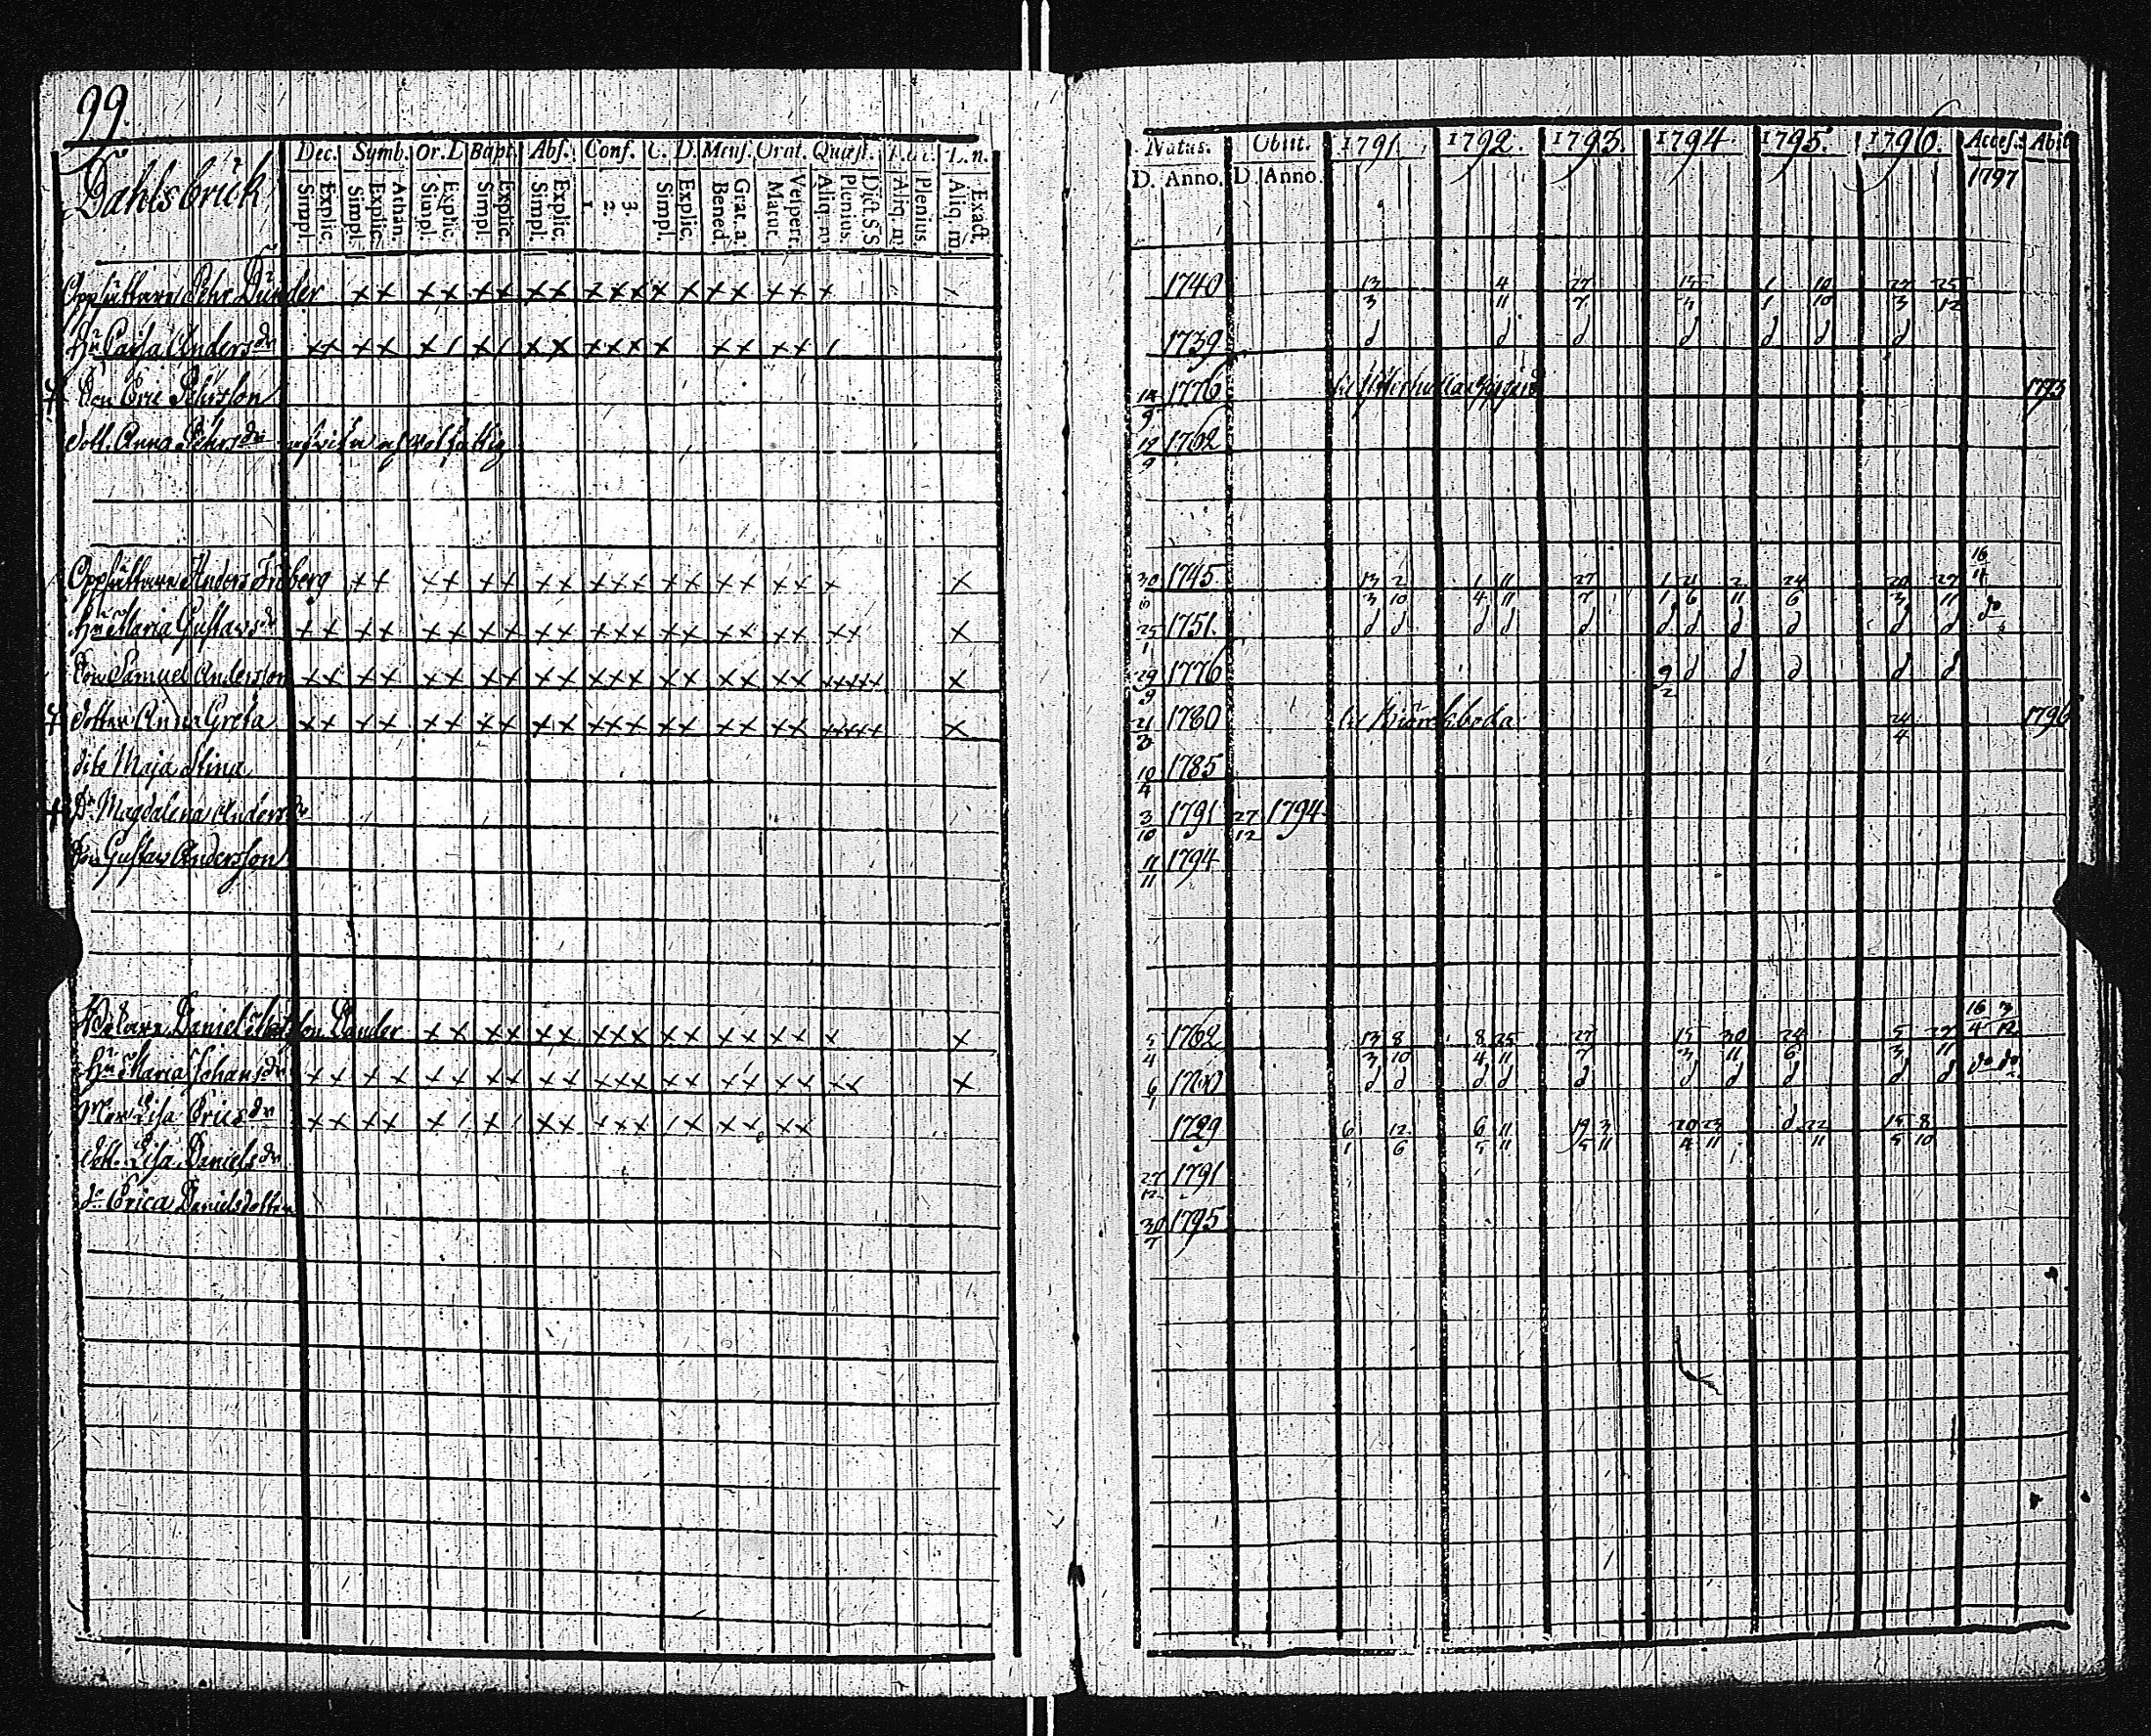 99.
Dahlsbrück
Dec. Symb. Or. D. Bapt. Abs. Conf. C. D. Mens. Orat. Quæst. L. n.
Simpl. Explic. Simpl. Explic. Athan. Simpl. Explic. Simpl. Explic. Simpl. Explic. 1. 2. 3. Simpl. Explic. Bened. Grat. a. Matut. Vespert. Aliq. m Plenius. Dict. S.S Aliq. m Plenius. Aliq. m Exact.
Natus. Obiit. 1791. 1792. 1793. 1794. 1795. 1796. Access. Abiit
D. Anno. D. Anno. 1797
Oppsüttare Pehr Dunder x x x x x x x x x x x x x x x x x x 1740 13/3 4/11 27/7 15/3 1/1 10/10 27/3 25/12
Hu Cajsa Anders dr x x x x x / x / x x x x x x x x x x / 1739 d d d d d d d
Son Eric Pehrsson 1776 1793
dott. Anna Pehrs dr 12/9 1762
Oppsüttare Anders Friberg x x x x x x x x x x x x x x x x x x x 30 1745 13/3 2/10 1/4 11/11 27/7 24/6 20/3 27/11 16/4
Hu Maria Gustavs dr x x x x x x x x x x x x x x x x x x x x x x x 25/1 1751. d d d d d d d d d d d do
Son Samuel Andersson x x x x x x x x x x x x x x x x x x x x x x x x x x 29/9 1776 9/2 d d d d d
dotter Anna Greta x x x x x x x x x x x x x x x x x x x x x x x x x x 21/3 1780 til Biörckboda 24/4 1796
dito Maja Stina 10/4 1785
Do Magdalena Anders dr 3/10 1791 27/12 1794
Son Gustav Andersson 11/11 1794
Daniel Matsson Lander x x x x x x x x x x x x x x x x 5/4 1762 13/3 8/10 8/4 25/11 27/7 15/3 30/11 24/6 5/3 27/11 16/4 3/12
Hu Maria Johans dr x x x x x x x x x x x x x x x x x x x x x x 6/1 1760 d d d d d d d d d d do do
Mor Lisa Erics dr x x x x x / x / x x x x x / x x x x x 1729 6/1 12/6 6/5 11/11 19/5 3/11 20/4 23/11 d 22/11 15/5 8/10
dott. Lisa Daniels dr 27/12 1791
do Erica Danielsdotter 30/7 1795